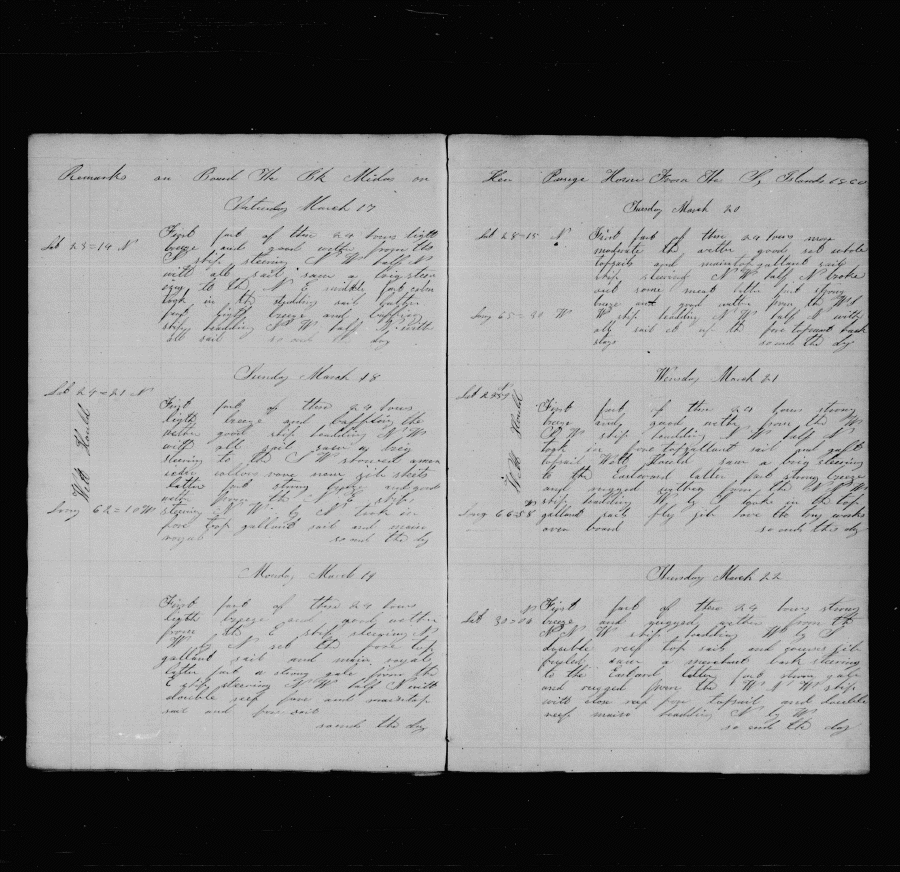 Remarks on Board The Bk Midas on
Saturday March 17
Lat 23=14 N
First part of these 24 hours light
breze and good wether from the
ship steering N W half N
with all sail saw a brig steer
ing to the N E middle part calm
took in the studding sail latter
part light breeze and baffling
ship headding N W half N with
all sail so ends the day
Sunday March 18
Lat 24=21 N
First part of these 24 hours
light breeze and baffling the
wether good ship headding N W
with all sail saw a brig
steering to the S W
latter part strong breeze and good
wether from the N E ship
Long 62=10 W
steering N W by N took in
fore top gallant sail and main
royal so ends the dy
Will Hould
Monday March 19
First part of these 24 hours
light breeze and good wether
from the E ship steering N
W by N set the fore top
gallant sail and main royal
latter part a strong gale from the
E ship steering N W half N with
double reef fore and maintop
sail and fore sail
so ends the day
Her Parige Home From The Islands 1860
Tuesday March 20
Lat 28=15 N
First part of these 24 hours more
moderate the wether good set whole
topsails and maintopgallant sail
ship steering N W half N broke
out some meat latter part strong
breze and good wether from the W S
Long 65=30 W
W ship headding N W half N with
all sail set up the fore topmast back
stays so ends the dy
Wensday March 21
First part of these 24 hours strong
breze and good wether from the W
S W ship headding N W half N
took in fore topgallant sail and gaft
topsail Will Hould saw a brig steering
to the Eastward latter part strong breeze
and rugged wether from the
ship headding W by took in the top
Long 66=58
gallant sails fly jib hove the try works
over board so ends this dy
Will Hould
Thursday March 22
Lat 30=00 N
First part of these 24 hours strong
breze and rugged wether from the
N N W ship headding W by S
double reef top sail and courses jib
furled saw a merchant bark steering
to the Eastard latter part strong gale
and rugged from the W N W ship
with close reef fore topsail and double
reef main headding N by W
so ends the day